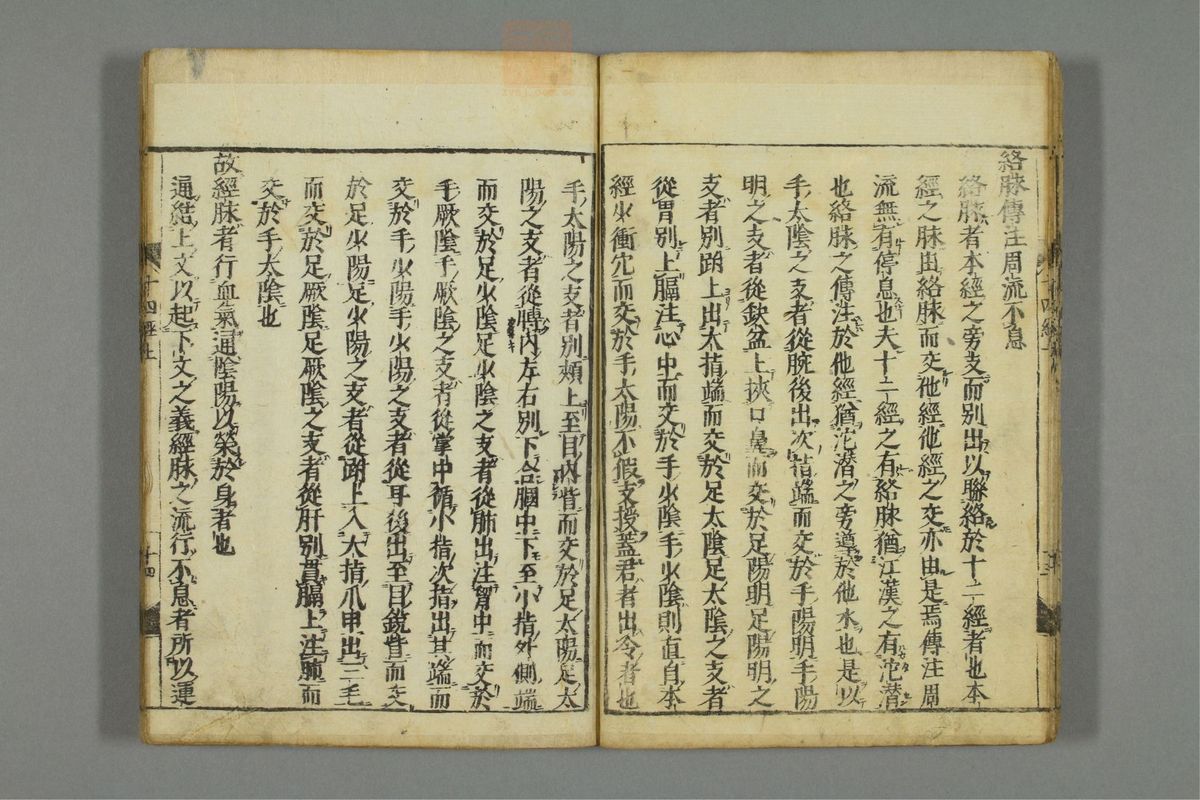 絡脉傳注周流不息
絡脉者本經之旁支而別出以聯絡於十二經者也本
經之脉由絡脉而交他經他經之交亦由是焉傳注周
流無有停息也夫十二經之有絡脉猶江漢之有沱潜
也絡脉之傳注於他經猶沱潜之旁導於他水也是以
手太陰之支者從腕後出次指端而交於手陽明手陽
明之支者從鈌盆上挾口鼻而交於足陽明足陽明之
支者別跗上出大指端而交於足太陰足太陰之支者
從胃別上膈注心中而交於手少陰手少陰則直自本
經少衝穴而交於手太陽不假支授蓋君者出令者也
手太陽之支者別頰上至目内眥而交於足太陽足太
陽之支者從膊内左右別下合膕中下至小指外側端
而交於足少陰足少陰之支者從肺出注胷中而交於
手厥陰手厥陰之支者從掌中循小指次指出其端而
交於手少陽手少陽之支者從耳後出至目鋭眥而交
於足少陽足少陽之支者從跗上入大指爪甲出三毛
而交於足厥陰足厥陰之支者從肝別貫膈上注肺而
交於手太陰也
故經脉者行血氣通陰陽以榮於身者也
通結上文以起下文之義經脉之流行不息者所以運
十四經上
十四